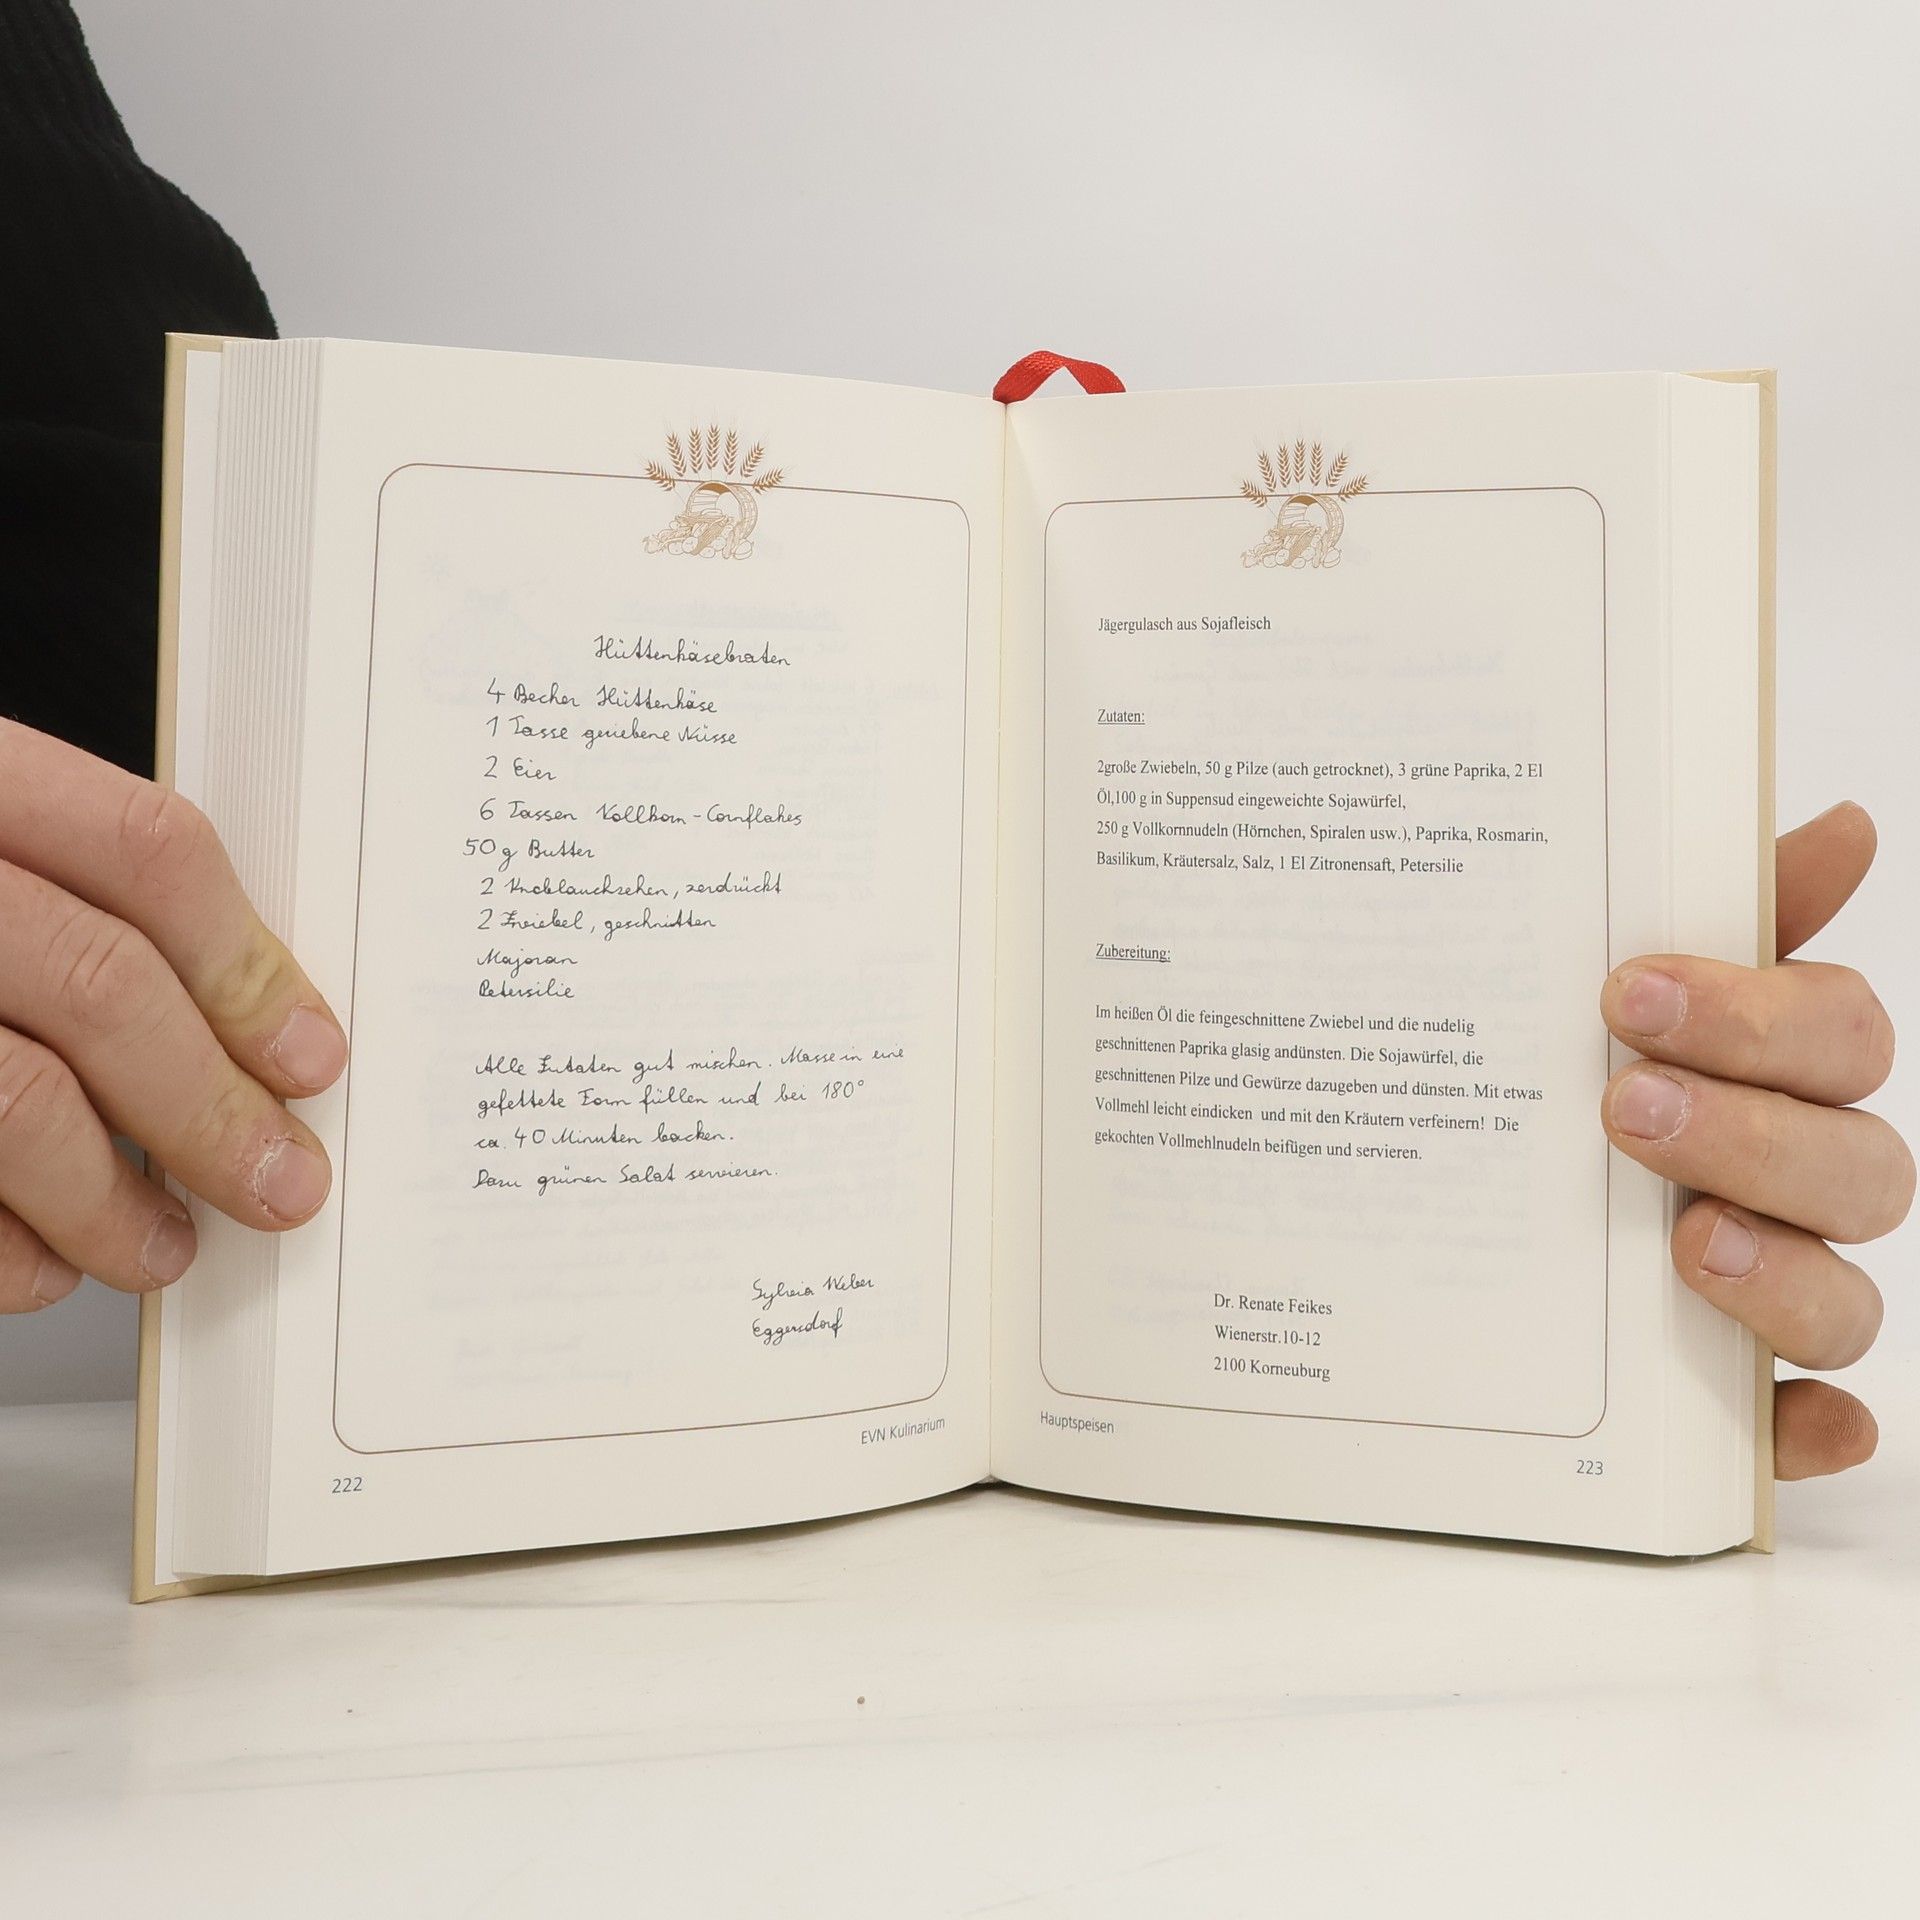 Hüttenkäsebraten
4 Becher Hüttenkäse
1 Tasse geriebene Nüsse
2 Eier
6 Tassen Vollkorn-Cornflakes
50 g Butter
2 Knoblauchzehen, zerdrückt
2 Zwiebel, geschnitten
Majoran
Petersilie
Alle Zutaten gut mischen. Masse in eine
gefettete Form füllen und bei 180°
ca. 40 Minuten backen.
Dazu grünen Salat servieren.
Sylvia Weber
Eggersdorf
EVN Kulinarium
222
Jägergulasch aus Sojafleisch
Zutaten:
2große Zwiebeln, 50 g Pilze (auch getrocknet), 3 grüne Paprika, 2 El
Öl,100 g in Suppensud eingeweichte Sojawürfel,
250 g Vollkornnudeln (Hörnchen, Spiralen usw.), Paprika, Rosmarin,
Basilikum, Kräutersalz, Salz, 1 El Zitronensaft, Petersilie
Zubereitung:
Im heißen Öl die feingeschnittene Zwiebel und die nudelig
geschnittenen Paprika glasig andünsten. Die Sojawürfel, die
geschnittenen Pilze und Gewürze dazugeben und dünsten. Mit etwas
Vollmehl leicht eindicken und mit den Kräutern verfeinern! Die
gekochten Vollmehlnudeln beifügen und servieren.
Dr. Renate Feikes
Wienerstr.10-12
2100 Korneuburg
Hauptspeisen
223